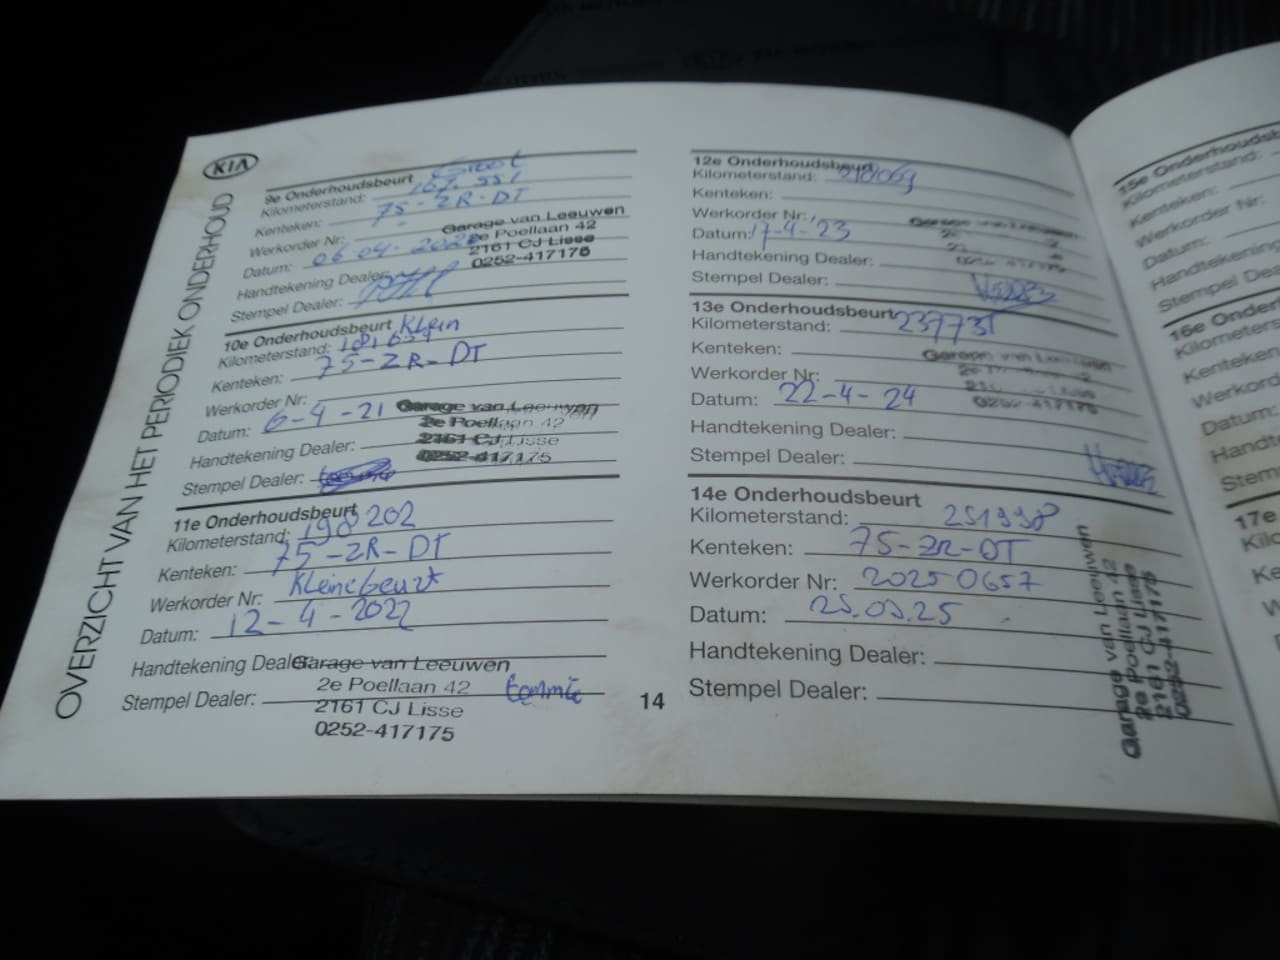 KIA
OVERZICHT VAN HET PERIODIEK ONDERHOUD
9e Onderhoudsbeurt Groot
Kilometerstand: 167.551
Kenteken: 75-ZR-DT
Werkorder Nr:
Datum: 06-04-202
Handtekening Dealer:
Stempel Dealer:
Garage van Leeuwen
2e Poellaan 42
2161 CJ Lisse
0252-417175
10e Onderhoudsbeurt Klein
Kilometerstand: 181,659
Kenteken: 75-ZR-DT
Werkorder Nr:
Datum: 6-4-21
Handtekening Dealer:
Stempel Dealer:
Garage van Leeuwen
2e Poellaan 42
2161 CJ Lisse
0252-417175
11e Onderhoudsbeurt
Kilometerstand: 198202
Kenteken: 75-ZR-DT
Werkorder Nr: Kleinebeurt
Datum: 12-4-2022
Handtekening Dealer:
Stempel Dealer: tommie
Garage van Leeuwen
2e Poellaan 42
2161 CJ Lisse
0252-417175
14
12e Onderhoudsbeurt
Kilometerstand:
Kenteken:
Werkorder Nr:
Datum: 17-4-23
Handtekening Dealer:
Stempel Dealer:
Garage van Leeuwen
13e Onderhoudsbeurt
Kilometerstand: 237731
Kenteken:
Werkorder Nr:
Datum: 22-4-24
Handtekening Dealer:
Stempel Dealer:
Garage van Leeuwen
Lisse
0252-417175
14e Onderhoudsbeurt
Kilometerstand: 251998
Kenteken: 75-ZR-DT
Werkorder Nr: 20250657
Datum: 25.03.25
Handtekening Dealer:
Stempel Dealer:
Garage van Leeuwen
2e Poellaan 42
2161 CJ Lisse
0252-417175
15e Onderhoudsb
Kilometerstand:
Kenteken:
Werkorder Nr:
Datum:
Handtekening
Stempel Dea
16e Onder
Kilometers
Kenteken
Werkord
Datum:
Handt
Stem
17e
Kilo
Ke